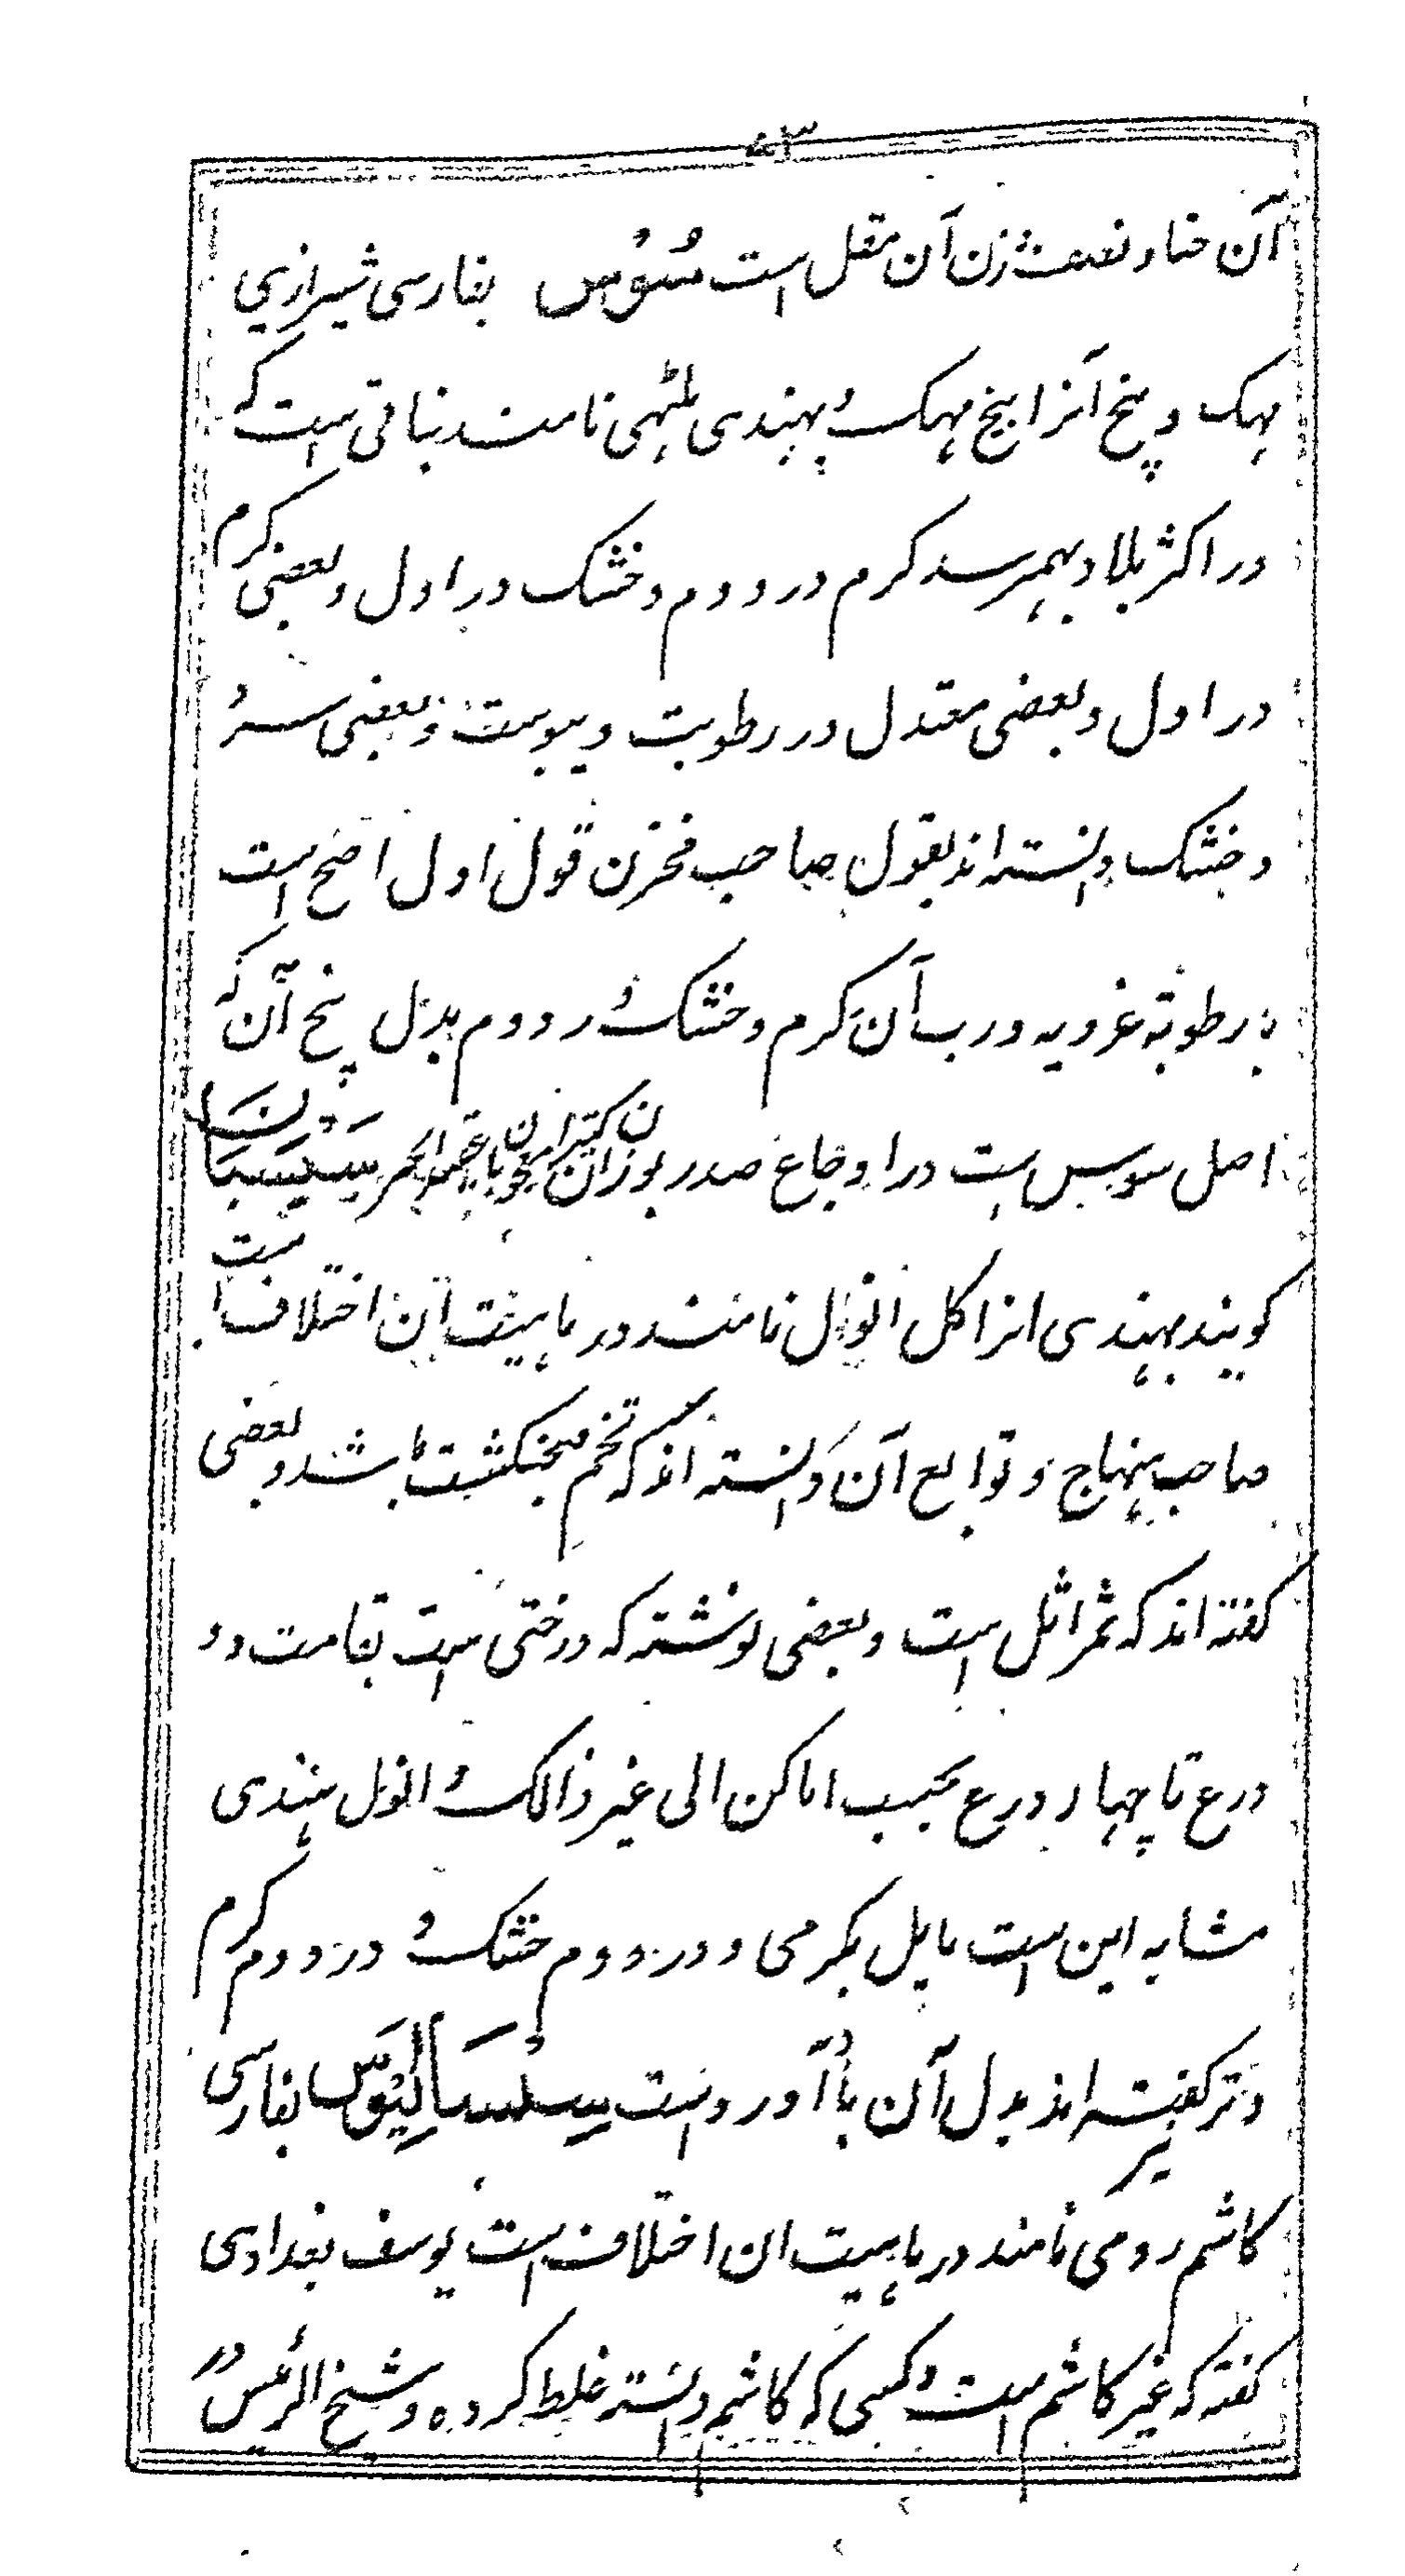 ۷۳
آن حنا و نصف وزن آن مقل است سُوُس بفارسی شیرازی
مهک و بیخ آنرا بیخ مهک و بهندی ملٹهی نامند نباتی است که
در اکثر بلاد بهمرسد کرم در دوم و خشک در اول و بعضی کرم
در اول و بعضی معتدل در رطوبت و یبوست و بعضی سرد
و خشک دانسته اند بقول صاحب مخزن قول اول اصح است
با رطوبة غرویه و رب آن کرم و خشک در دوم بدل بیخ آن که
اصل سوس است در اوجاع صدر بوزان آن کتیرا
کویند بهندی انرا کل انول نامند در ماهیت آن اختلاف است
صاحب منهاج و توابع آن دانسته اند که تخم پنجنکشت باشد و بعضی
کفته اند که ثمر اثل است و بعضی نوشته که درختی است بقامت دو
درع تا چهار درع بحسب اماکن الی غیر ذالک و انول هندی
مشابه این است مایل بکرمی و در دوم خشک و در دوم کرم
و تر کفته اند بدل آن باآورد است سِسَالِیُوس بفارسی
کاشم رومی نامند در ماهیت ان اختلاف است یوسف بغدادی
کفته که غیر کاشم است و کسی که کاشم دانسته غلط کرده و شیخ الرئیس در